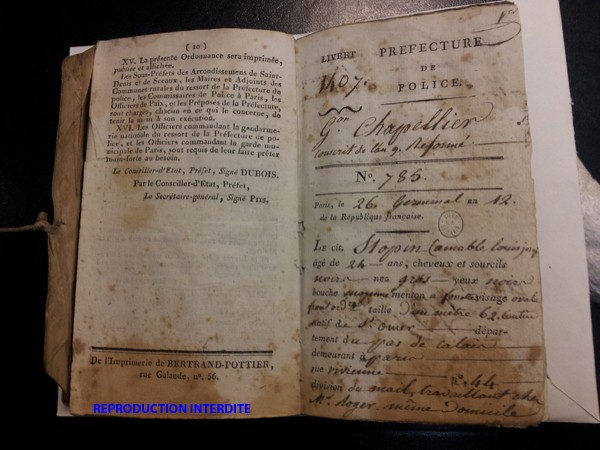 ( 10 )
XV. La présente Ordonnance sera imprimée,
publiée et affichée.
Les Sous-Préfets des Arrondissemens de Saint-
Denis et de Sceaux, les Maires et Adjoints des
Communes rurales du ressort de la Préfecture de
police, les Commissaires de Police à Paris, les
Officiers de Paix, et les Préposés de la Préfecture,
sont chargés, chacun en ce qui le concerne, de
tenir la main à son exécution.
XVI. Les Officiers commandant la gendarme-
rie nationale du ressort de la Préfecture de po-
lice, et les Officiers commandant la garde mu-
nicipale de Paris, sont requis de leur faire prêter
main-forte au besoin.
Le Conseiller-d'Etat, Préfet, Signé DUBOIS.
Par le Conseiller-d'Etat, Préfet,
Le Secrétaire-général, Signé PIIS.
De l'Imprimerie de BERTRAND-POTTIER,
rue Galande, n°. 56.
REPRODUCTION INTERDITE
LIVRET PREFECTURE
1407. DE
POLICE.
Gon Chapellier
conscrit de l'an 9. Reformé
N°. 785.
Paris, le 26 Germinal an 12.
de la République française.
LE cit. Stopin (amable louis
âgé de 24 ans, cheveux et sourcils
noirs nez gros yeux noirs
bouche moyenne menton à fossette visage ovale
front ord.re taille d'un mètre 62 centre
natif de St. Omer dépar-
tement du pas de calais
demeurant à paris
rue vivienne n°. 44
division du mail, travaillant chez
Mr. Roger même domicile